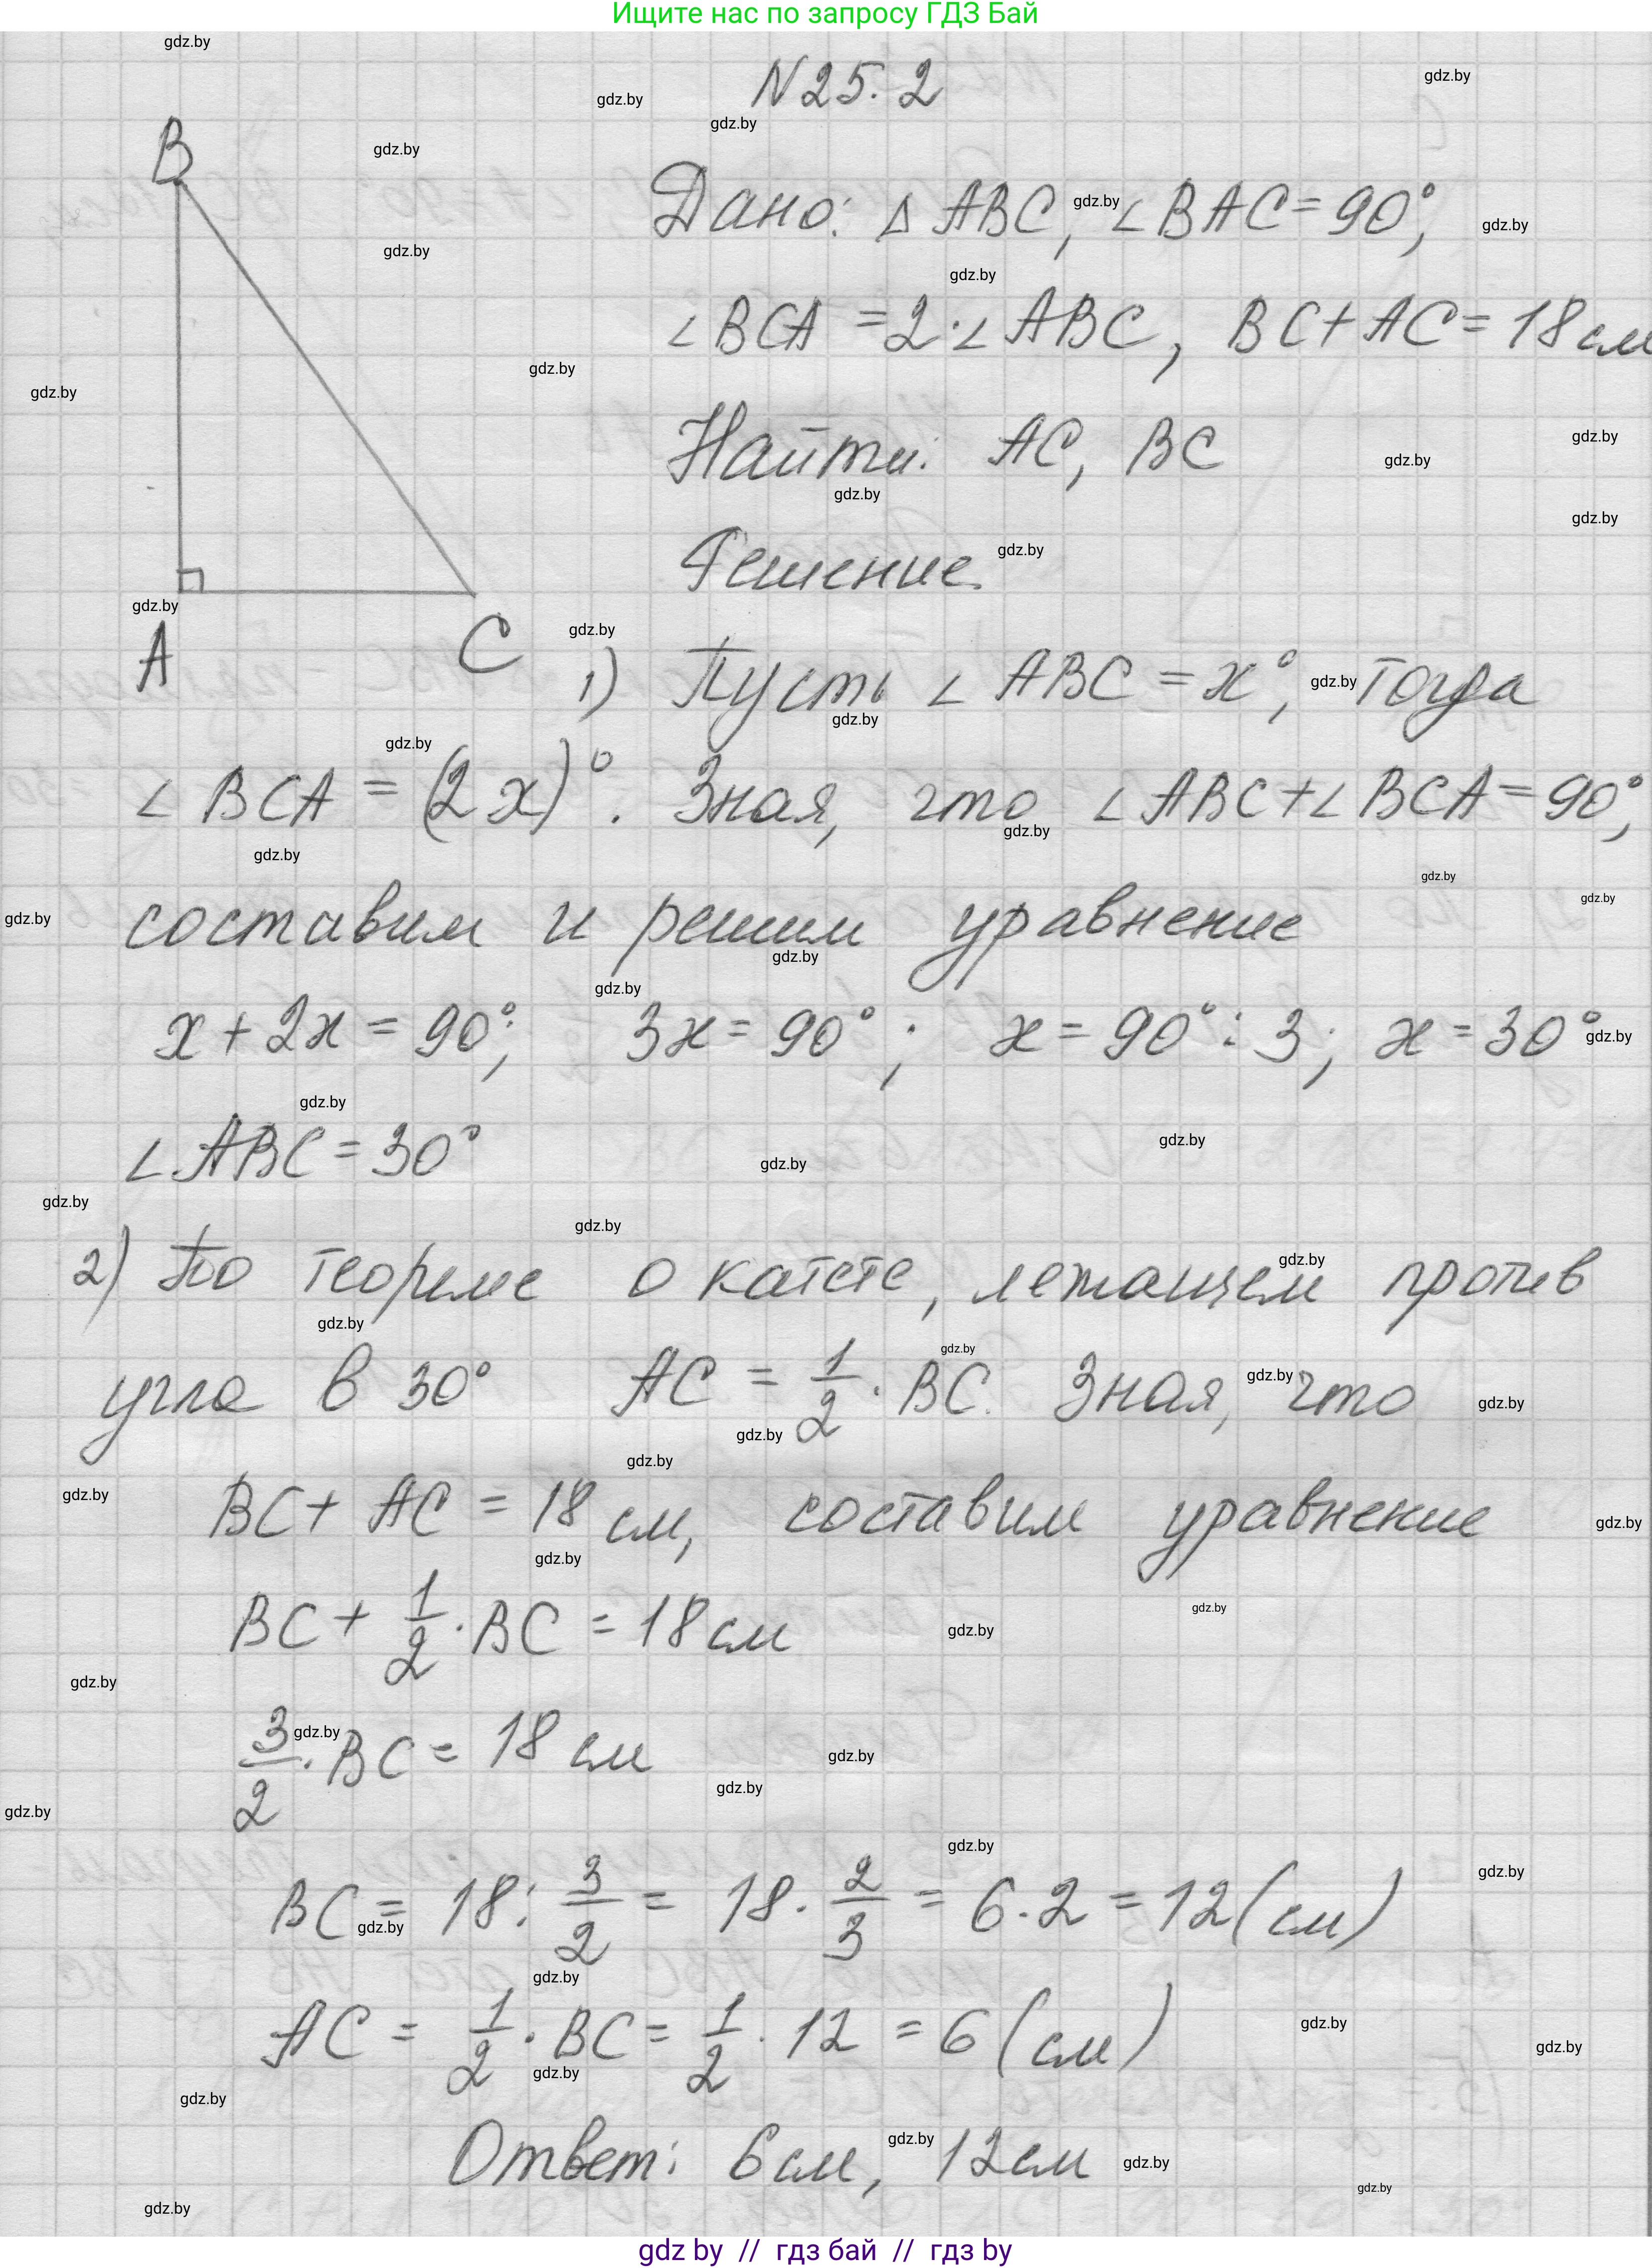 Ищите нас по запросу ГДЗ Бай
N 25.2
B
A
C
Дано: Δ ABC, ∠BAC = 90°,
∠BCA = 2·∠ABC, BC + AC = 18 см
Найти: AC, BC
Решение.
1) Пусть ∠ABC = x°, тогда
∠BCA = (2x)°. Зная, что ∠ABC + ∠BCA = 90°,
составим и решим уравнение
x + 2x = 90°; 3x = 90°; x = 90° : 3; x = 30°
∠ABC = 30°
2) По теореме о катете, лежащем против
угла в 30° AC = 1/2 · BC. Зная, что
BC + AC = 18 см, составим уравнение
BC + 1/2 · BC = 18 см
3/2 · BC = 18 см
BC = 18 : 3/2 = 18 · 2/3 = 6 · 2 = 12 (см)
AC = 1/2 · BC = 1/2 · 12 = 6 (см)
Ответ: 6 см, 12 см
gdz by // гдз бай // гдз by